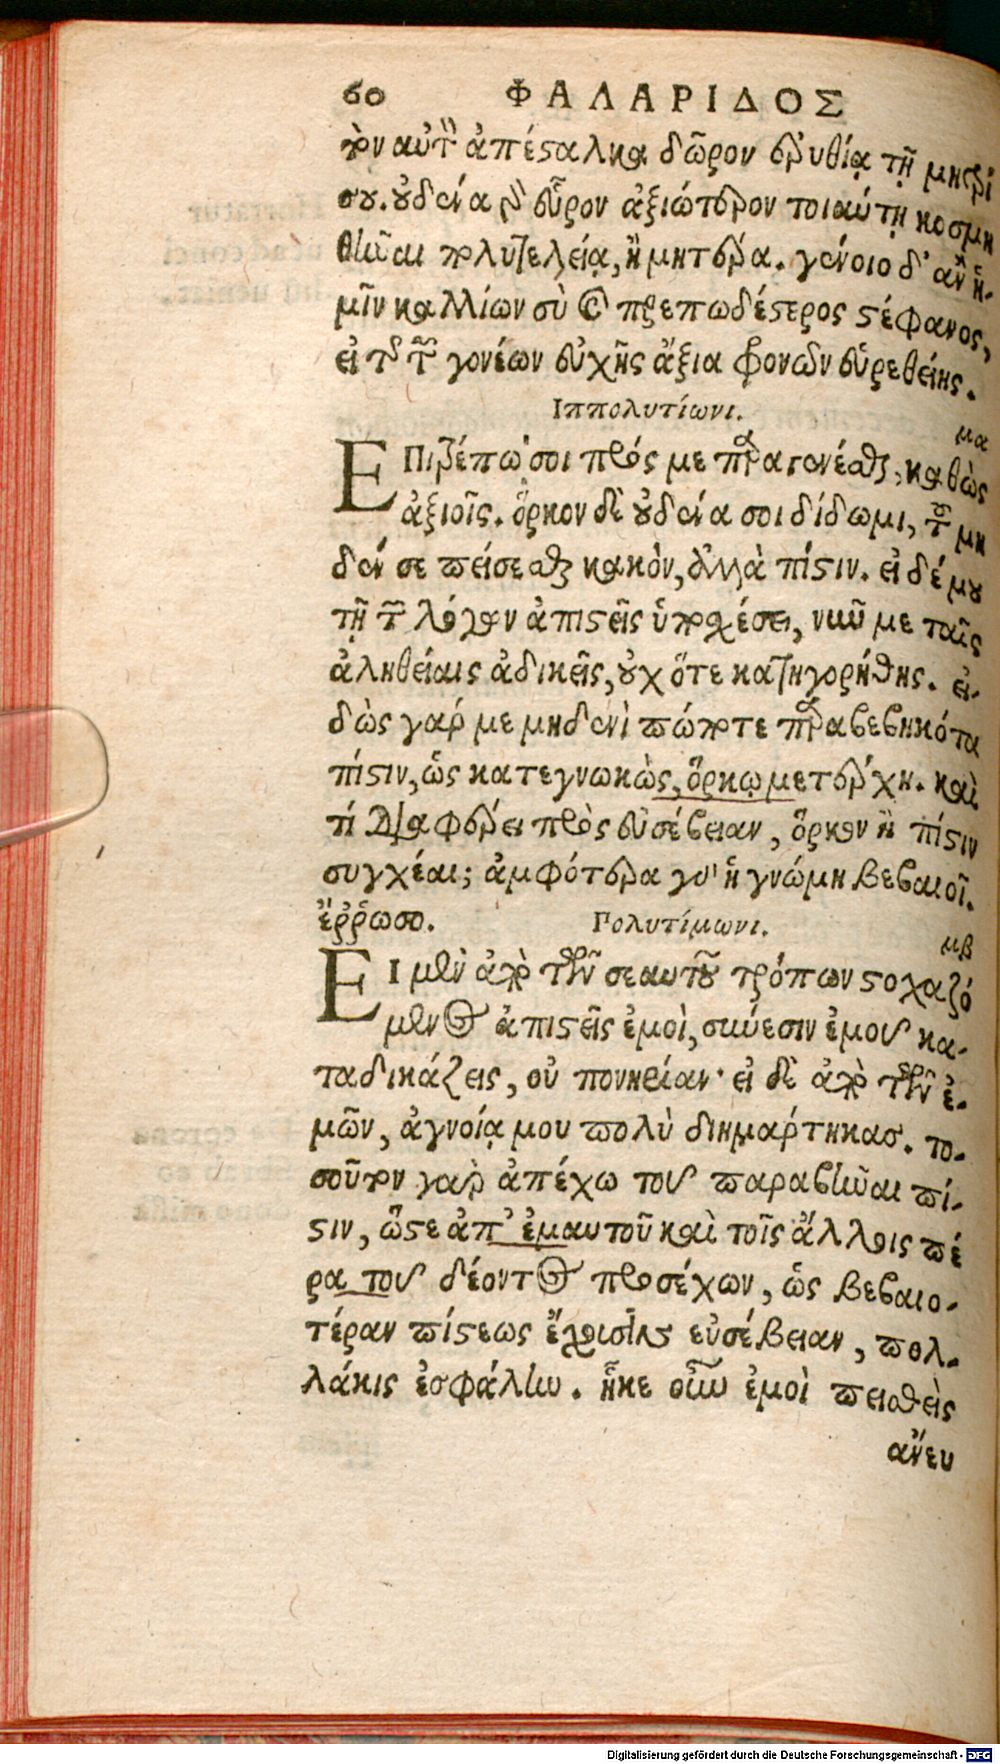 60 ΦΑΛΑΡΙΔΟΣ
τον αὐτὸν ἀπέσταλκα δῶρον ἐρυθίᾳ τῇ μητρί
σου. οὐδένα γὰρ εὗρον ἀξιώτερον τοιαύτῃ κοσμη
θῆναι πολυτελείᾳ, ἢ μητέρα. γένοιο δ' ἂν ἡ-
μῖν καλλίων σὺ καὶ πρεπωδέστερος στέφανος,
εἰ τῆς τῶν γονέων εὐχῆς ἄξια φρονῶν εὑρεθείης.
Ιππολυτίωνι.
μα
ΕΠιτρέπω σοι πρός με παραγενέσθαι, καθὼς
ἀξιοῖς. ὅρκον δὲ οὐδένα σοι δίδωμι, τοῦ μη
δέν σε πείσεσθαι κακὸν, ἀλλὰ πίστιν. εἰ δέ μου
τῇ τῶν λόγων ἀπιστεῖς ὑποσχέσει, νῦν με ταῖς
ἀληθείαις ἀδικεῖς, οὐχ ὅτε κατηγορήθης. εἰ-
δὼς γάρ με μηδενὶ πώποτε παραβεβηκότα
πίστιν, ὡς κατεγνωκὼς, ὅρκῳ μετέρχῃ. καὶ
τί διαφέρει πρὸς εὐσέβειαν, ὅρκον ἢ πίστιν
συγχέαι; ἀμφότερα γὰρ ἡ γνώμη βεβαιοῖ.
ἔῤῥωσο. Πολυτίμωνι.
μβ
ΕΙ μὲν ἀπὸ τῶν σεαυτοῦ τρόπων στοχαζό
μενος ἀπιστεῖς ἐμοὶ, σύνεσιν ἐμοῦ κα-
ταδικάζεις, οὐ πονηρίαν· εἰ δὲ ἀπὸ τῶν ἐ-
μῶν, ἀγνοίᾳ μου πολὺ διημάρτηκας. το-
σοῦτον γὰρ ἀπέχω τοῦ παραβῆναι πί-
στιν, ὥστε ἀπ' ἐμαυτοῦ καὶ τοῖς ἄλλοις πέ
ρα τοῦ δέοντος προσέχων, ὡς βεβαιο-
τέραν πίστεως ἔχουσι εὐσέβειαν, πολ-
λάκις ἐσφάλην. ἧκε οὖν ἐμοὶ πεισθεὶς
ἄνευ
Digitalisierung gefördert durch die Deutsche Forschungsgemeinschaft - DFG